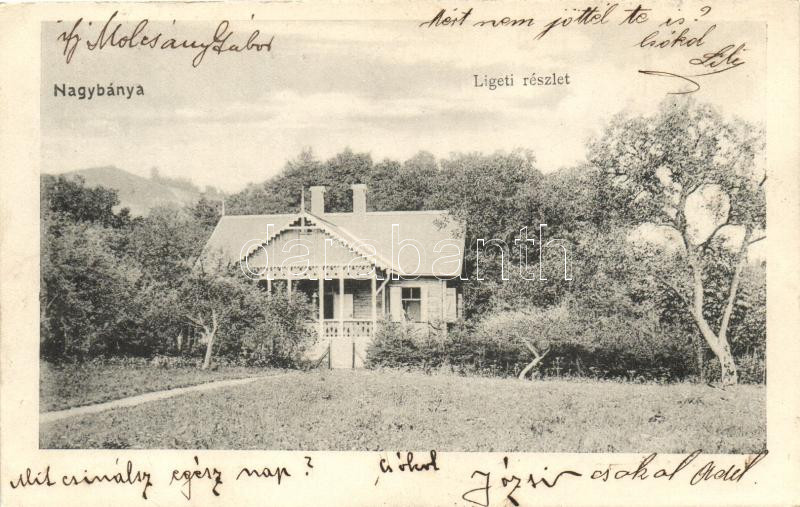 ifj Molcsány Gábor
Mért nem jöttél te is?
csókol
Lili
Nagybánya
Ligeti részlet
darabanth
Mit csinálsz egész nap?
csókol
Józsi csókol